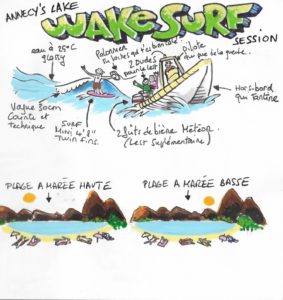 ANNECY'S LAKE
WAKESURF
SESSION
eau à 25°C
glassy
Palonnier
2 Dudes
pour le lest
Pilote
Hors-bord
qui tartine
Vague 50cm
Courte et
technique
SURF
MINI 4'8"
Twin fins.
2 fûts de bière Météor
(Lest suplémentaire)
PLAGE A MARÉE HAUTE
PLAGE A MARÉE BASSE